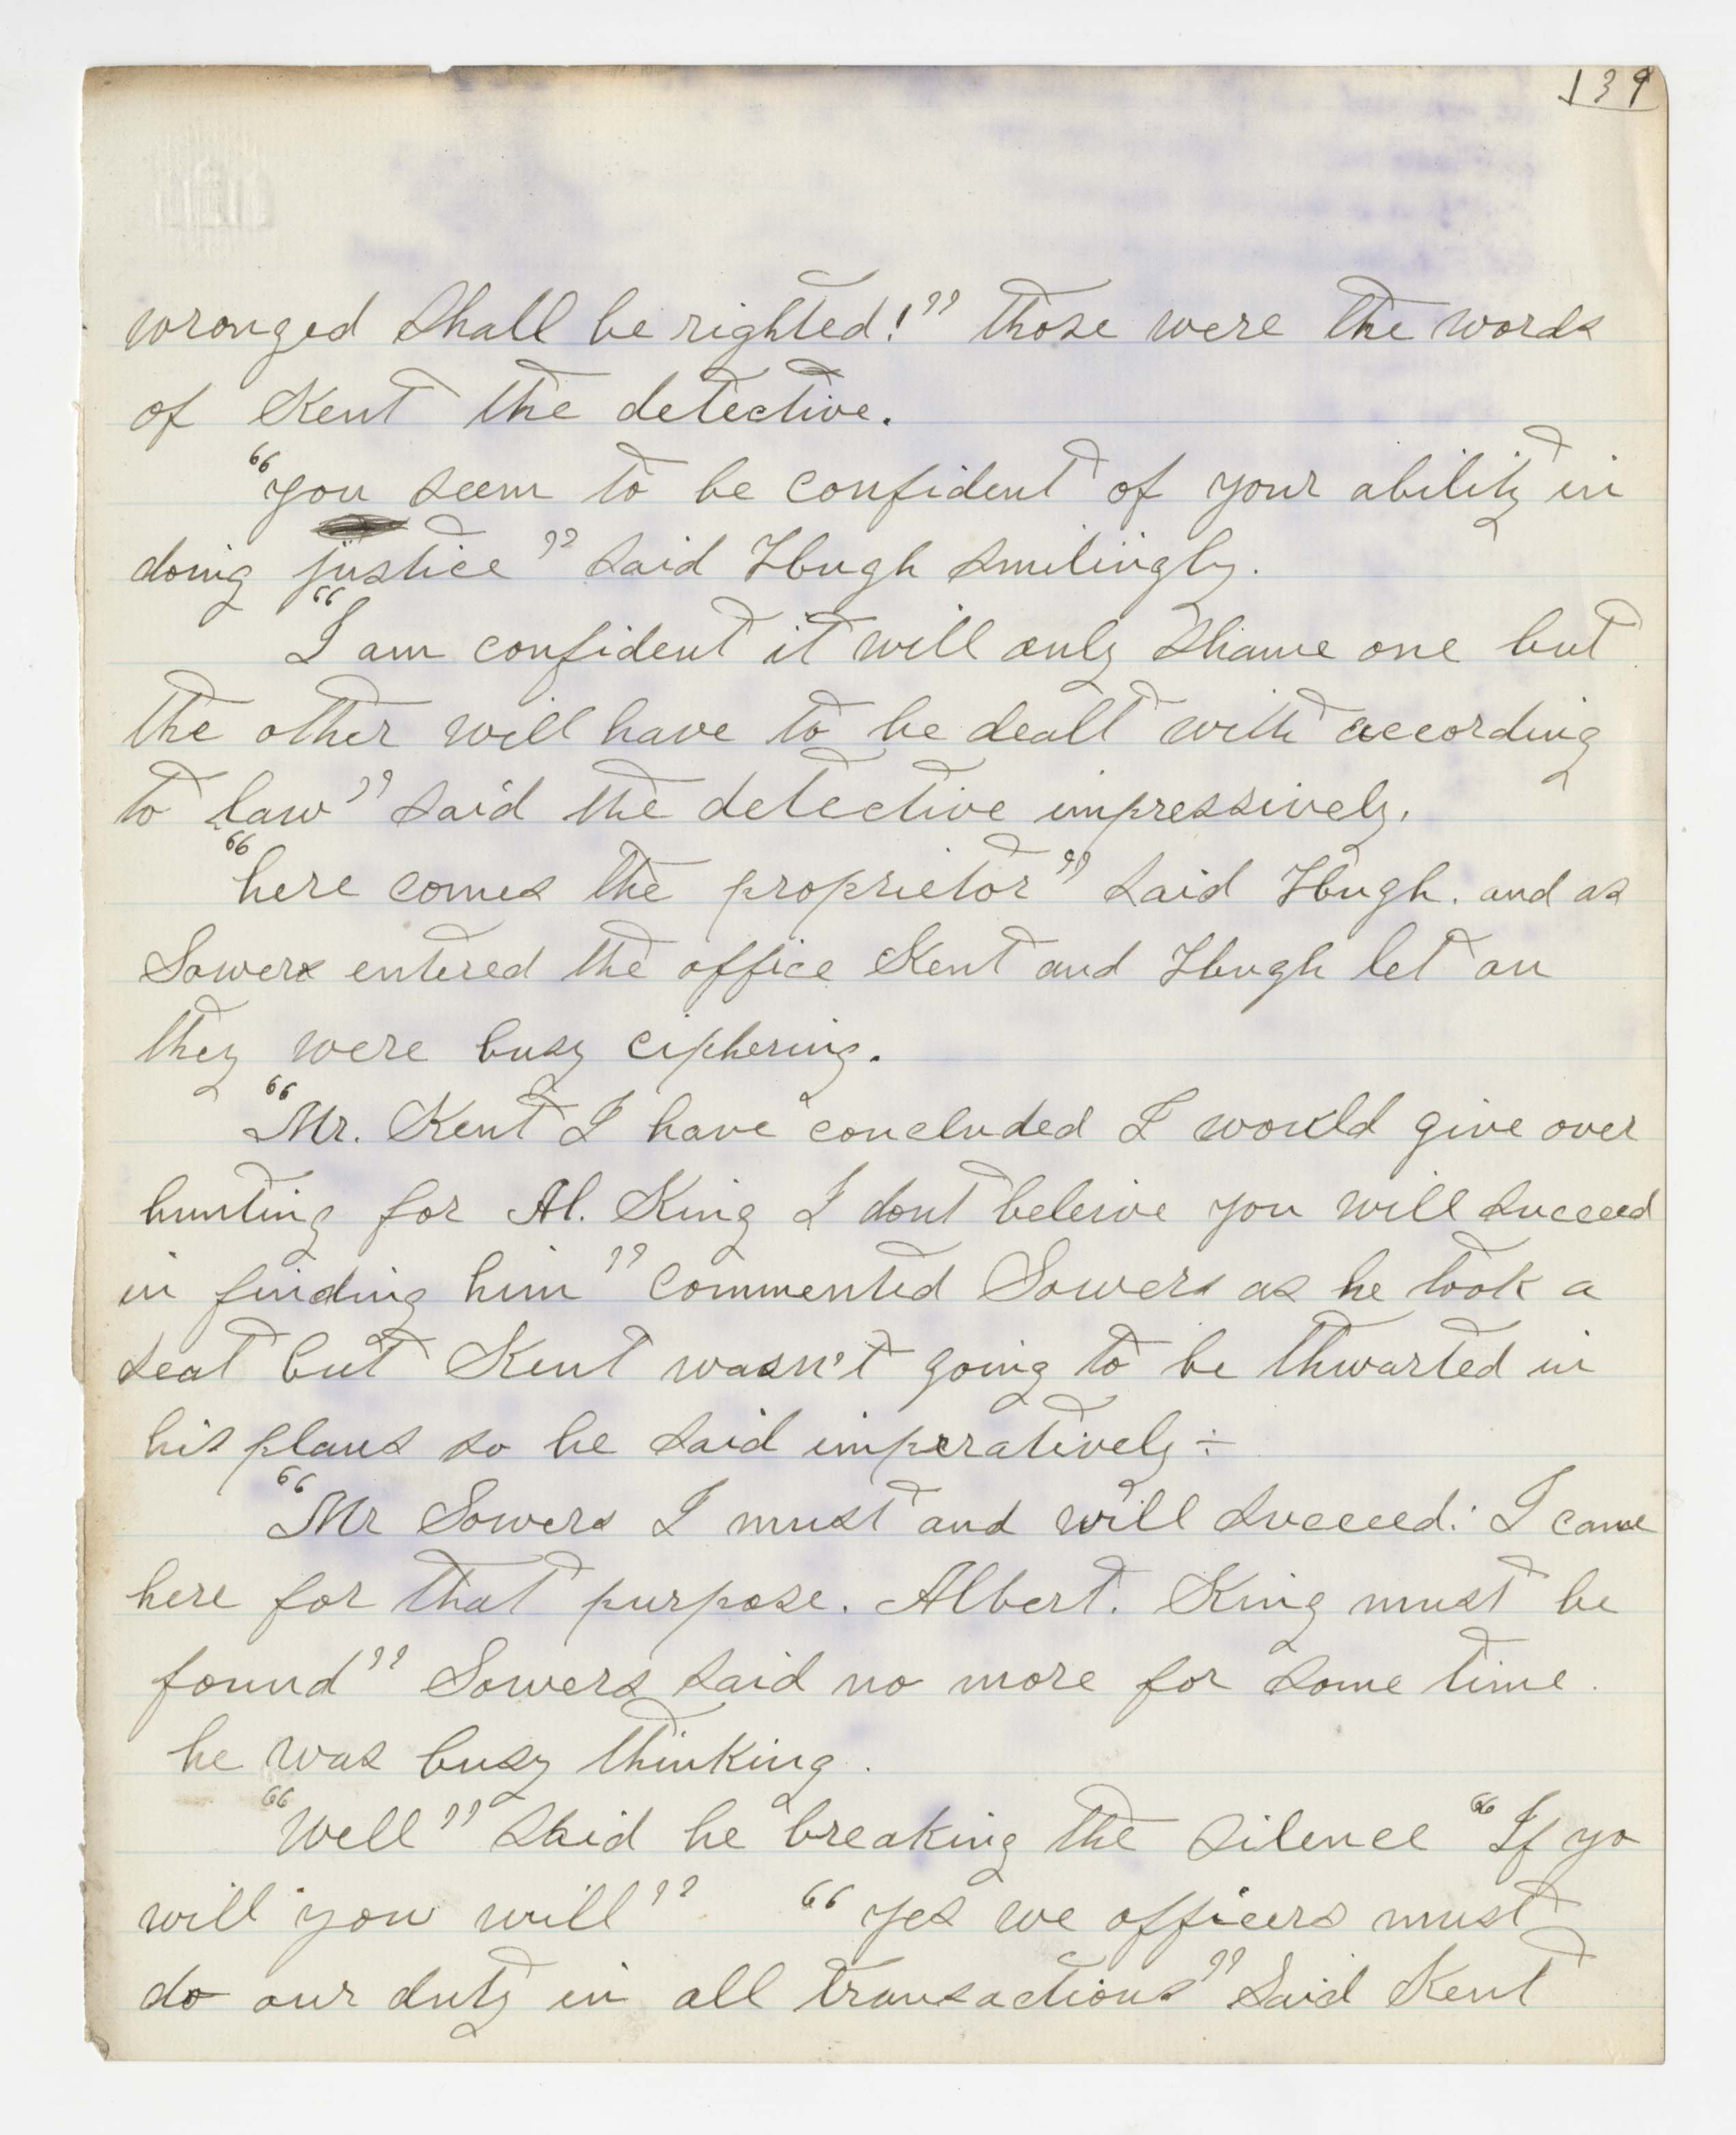 139
wronged shall be righted!" those were the words
of Kent the detective.
"you seem to be confident of your ability in
doing justice" said Hugh smilingly.
"I am confident it will only shame one but
the other will have to be dealt with according
to law" said the detective impressively.
"here comes the proprietor" said Hugh. and as
Sowers entered the office Kent and Hugh let on
they were busy ciphering.
"Mr. Kent I have concluded I would give over
hunting for Al. King I dont beleive you will succeed
in finding him" commented Sowers as he took a
seat but Kent wasn't going to be thwarted in
his plans so he said imperatively :-
"Mr Sowers I must and will succeed: I came
here for that purpose. Albert. King must be
found" Sowers said no more for some time.
he was busy thinking.
"Well" said he breaking the silence "If yo
will you will" "yes we officers must
do our duty in all transactions" said Kent